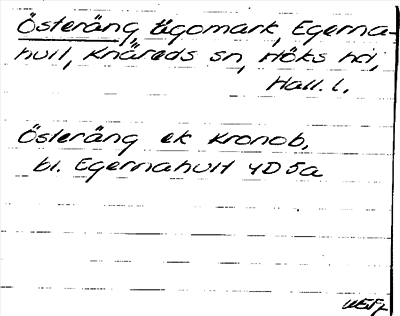 Österäng, ägomark, Egerna-
hult, Knäreds sn, Höks hd,
Hall. l.
Österäng ek Kronob.
bl. Egernahult 4D5a